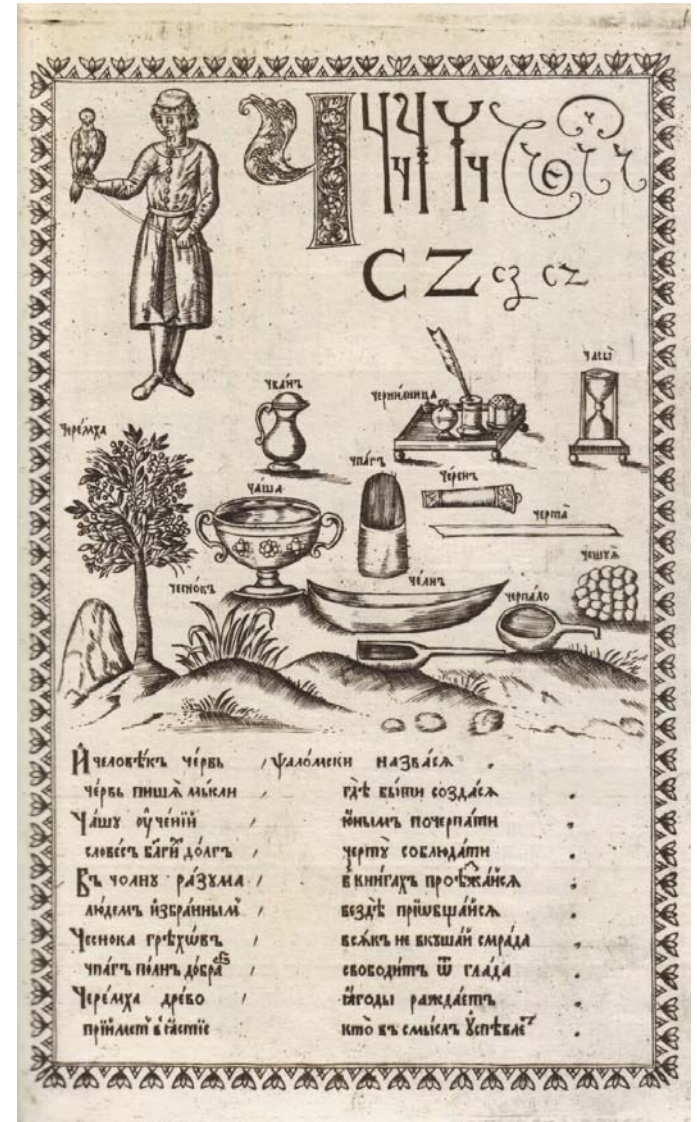 Ч Ч Ч Ч Ч Ч
C Z cz cz
чва́нъ
черни́лница
часы̀
чере́мха
ча́ша
чпа́гъ
че́ренъ
черта̀
чесно́къ
че́лнъ
черпа́ло
чешуѧ̀
И҆ человѣ́къ че́рвь / ѱало́мски назва́сѧ .
че́рвь пишѧ̀ мы́сли / гдѣ̀ бы́ти созда́сѧ .
Ча́шу ᲂу҆че́нїй / ю҆́нымъ почерпа́ти .
слове́съ бл҃ги́й до́лгъ / черту̀ соблюда́ти .
Въ чолну̀ ра́зума / в кни́гахъ проѣзжа́йсѧ .
лю́демъ и҆збра́нным / вездѣ̀ прїѡбща́йсѧ .
Чеснока̀ грѣхѡ́въ / всѧ́къ не вкуша́й смра́да
чпа́гъ по́лнъ добра̀ свободи́тъ ѿ гла́да .
Чере́мха дре́во / ꙗ҆́годы ражда́етъ .
прїи́метъ в сла́стїе кто̀ въ смы́слъ ᲂу҆спѣвае́т .